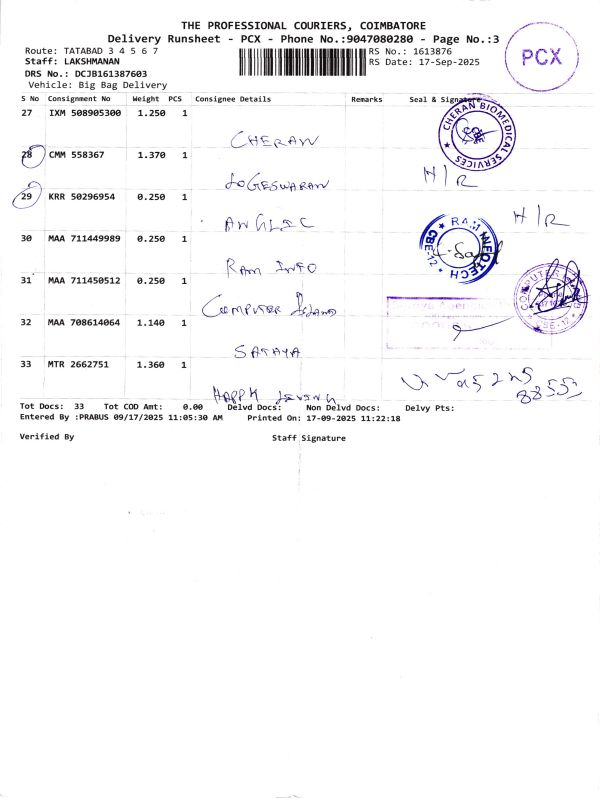 THE PROFESSIONAL COURIERS, COIMBATORE
Delivery Runsheet - PCX - Phone No.:9047080280 - Page No.:3
Route: TATABAD 3 4 5 6 7
RS No.: 1613876
Staff: LAKSHMANAN
RS Date: 17-Sep-2025
DRS No.: DCJB161387603
Vehicle: Big Bag Delivery
PCX
S No Consignment No Weight PCS Consignee Details Remarks Seal & Signature
27 IXM 508905300 1.250 1
CHERAN
CHERAN BIOMEDICAL SERVICES
28 CMM 558367 1.370 1
LOGESWARAN H/R
29 KRR 50296954 0.250 1
ANGLIC H/R
30 MAA 711449989 0.250 1
RAM INFO
RAM INFOTECH CBE-12
31 MAA 711450512 0.250 1
COMPUTER ISLAND
COMPUTER CBE-12
32 MAA 708614064 1.140 1
SATAYA
33 MTR 2662751 1.360 1
HAPPY LIVING
Tot Docs: 33 Tot COD Amt: 0.00 Delvd Docs: Non Delvd Docs: Delvy Pts:
Entered By :PRABUS 09/17/2025 11:05:30 AM Printed On: 17-09-2025 11:22:18
Verified By Staff Signature